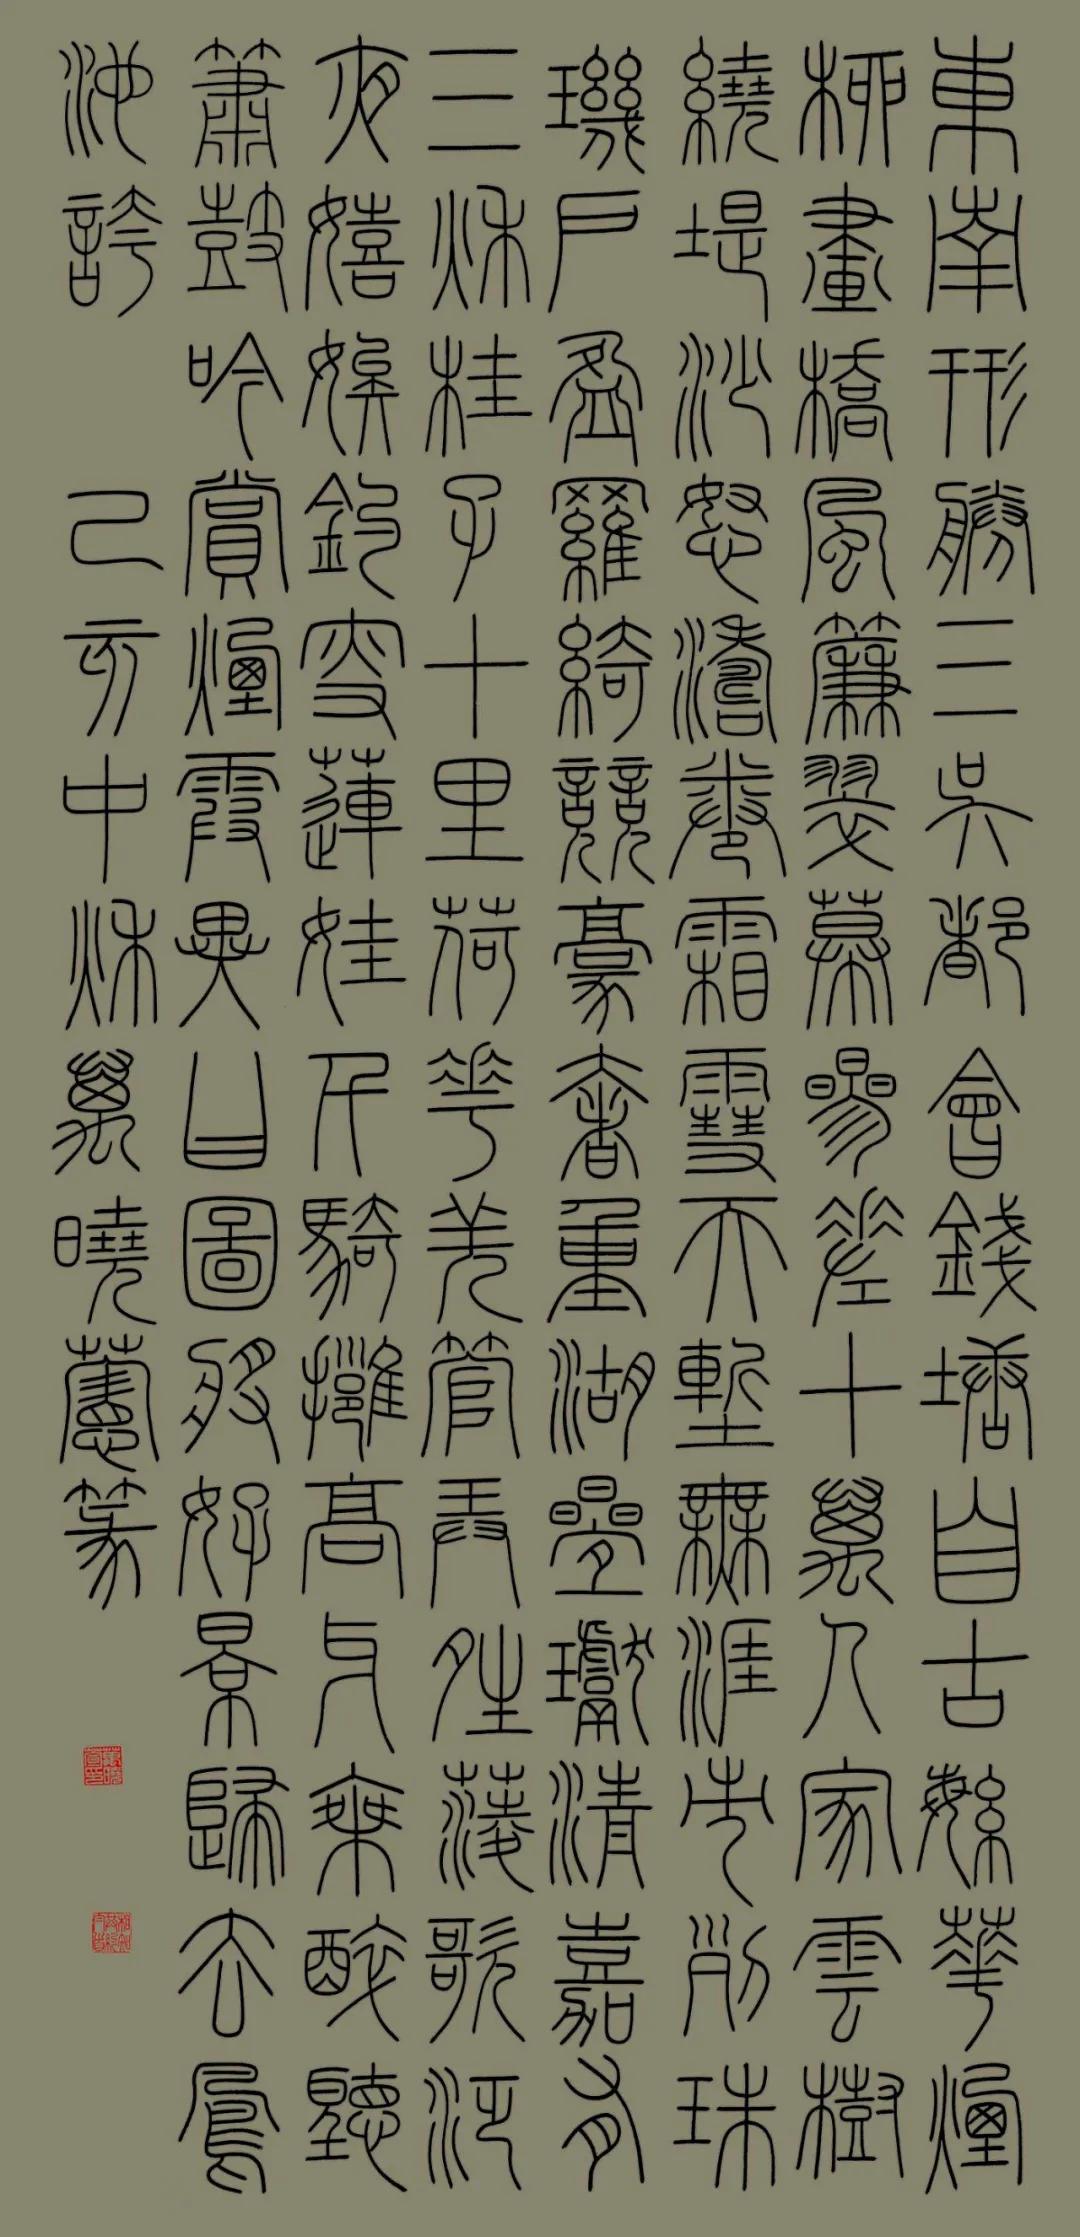 東南形勝三吳都會錢塘自古繁華煙
柳畫橋風簾翠幕參差十萬人家雲樹
繞堤沙怒濤卷霜雪天塹無涯市列珠
璣戶盈羅綺競豪奢重湖疊瓛清嘉有
三秋桂子十里荷花羌管弄晴菱歌泛
夜嬉娭釣叟蓮娃千騎擁高牙乘醉聽
簫鼓吟賞煙霞異日圖將好景歸去鳳
池誇 己亥中秋萬曉萱篆